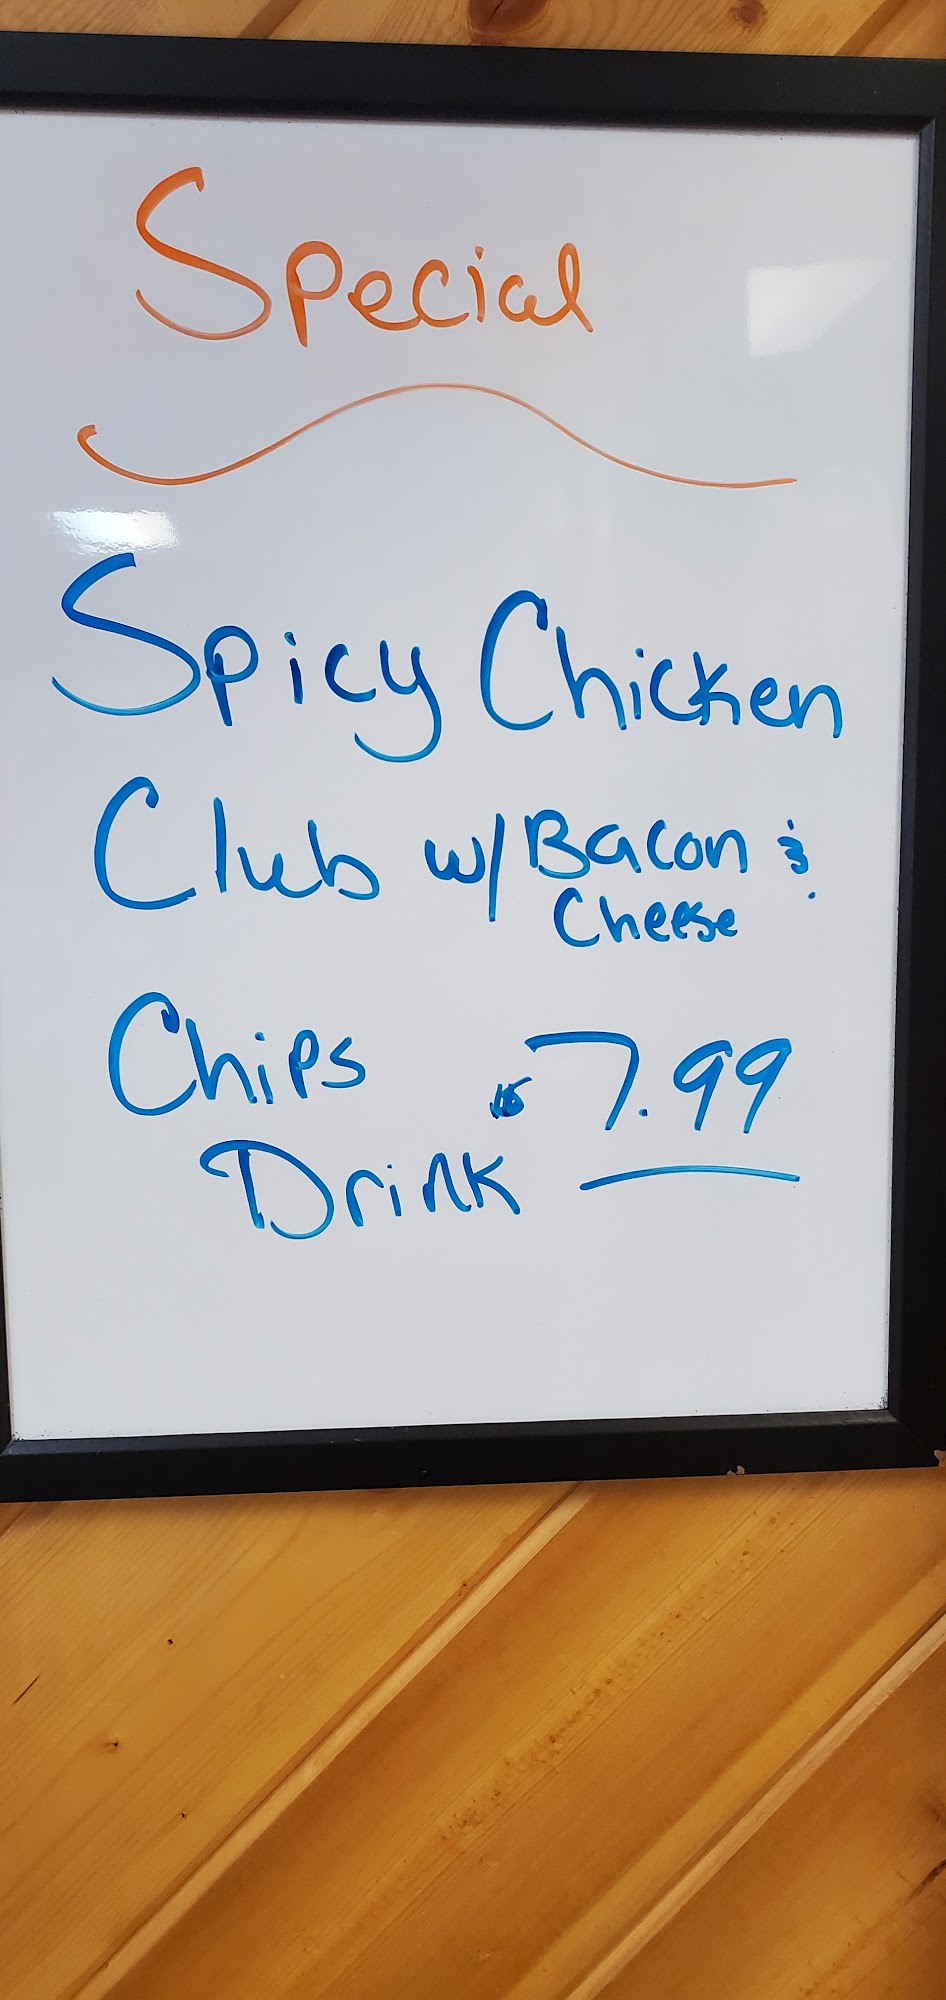 Special
Spicy Chicken
Club w/ Bacon &
Cheese
Chips $7.99
Drink